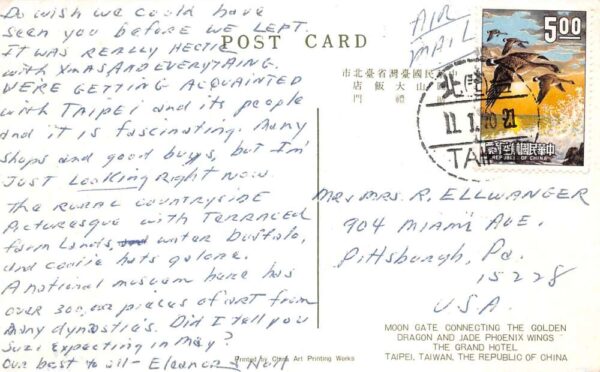 Do wish we could have
seen you before we LEPT.
IT WAS REALLY HECTIC
with XMAS AND EVERYTHING.
WE'RE GETTING ACQUAINTED
with TAIPEI and its people
and it is fascinating. Many
shops and good buys, but I'm
JUST Looking Right now.
The RURAL countryside
Picturesque with Terraced
farm Lands, water buffalo,
and coolie hats galore.
A national museum here has
over 300,000 pieces of ART from
many dynastia's. Did I tell you
Suzi expecting in May?
Our best to all - Eleanor & Noll
POST CARD
AIR
MAIL
中華民國臺灣省臺北市
圓山大飯店
禮門
5.00
中華民國郵票
REPUBLIC OF CHINA
11.1.70.21
TAI
Mr & Mrs. R. ELLWANGER
904 MIAMI AVE.
Pittsburgh, Pa.
15228
U.S.A.
MOON GATE CONNECTING THE GOLDEN
DRAGON AND JADE PHOENIX WINGS
THE GRAND HOTEL
TAIPEI, TAIWAN, THE REPUBLIC OF CHINA
Printed by China Art Printing Works